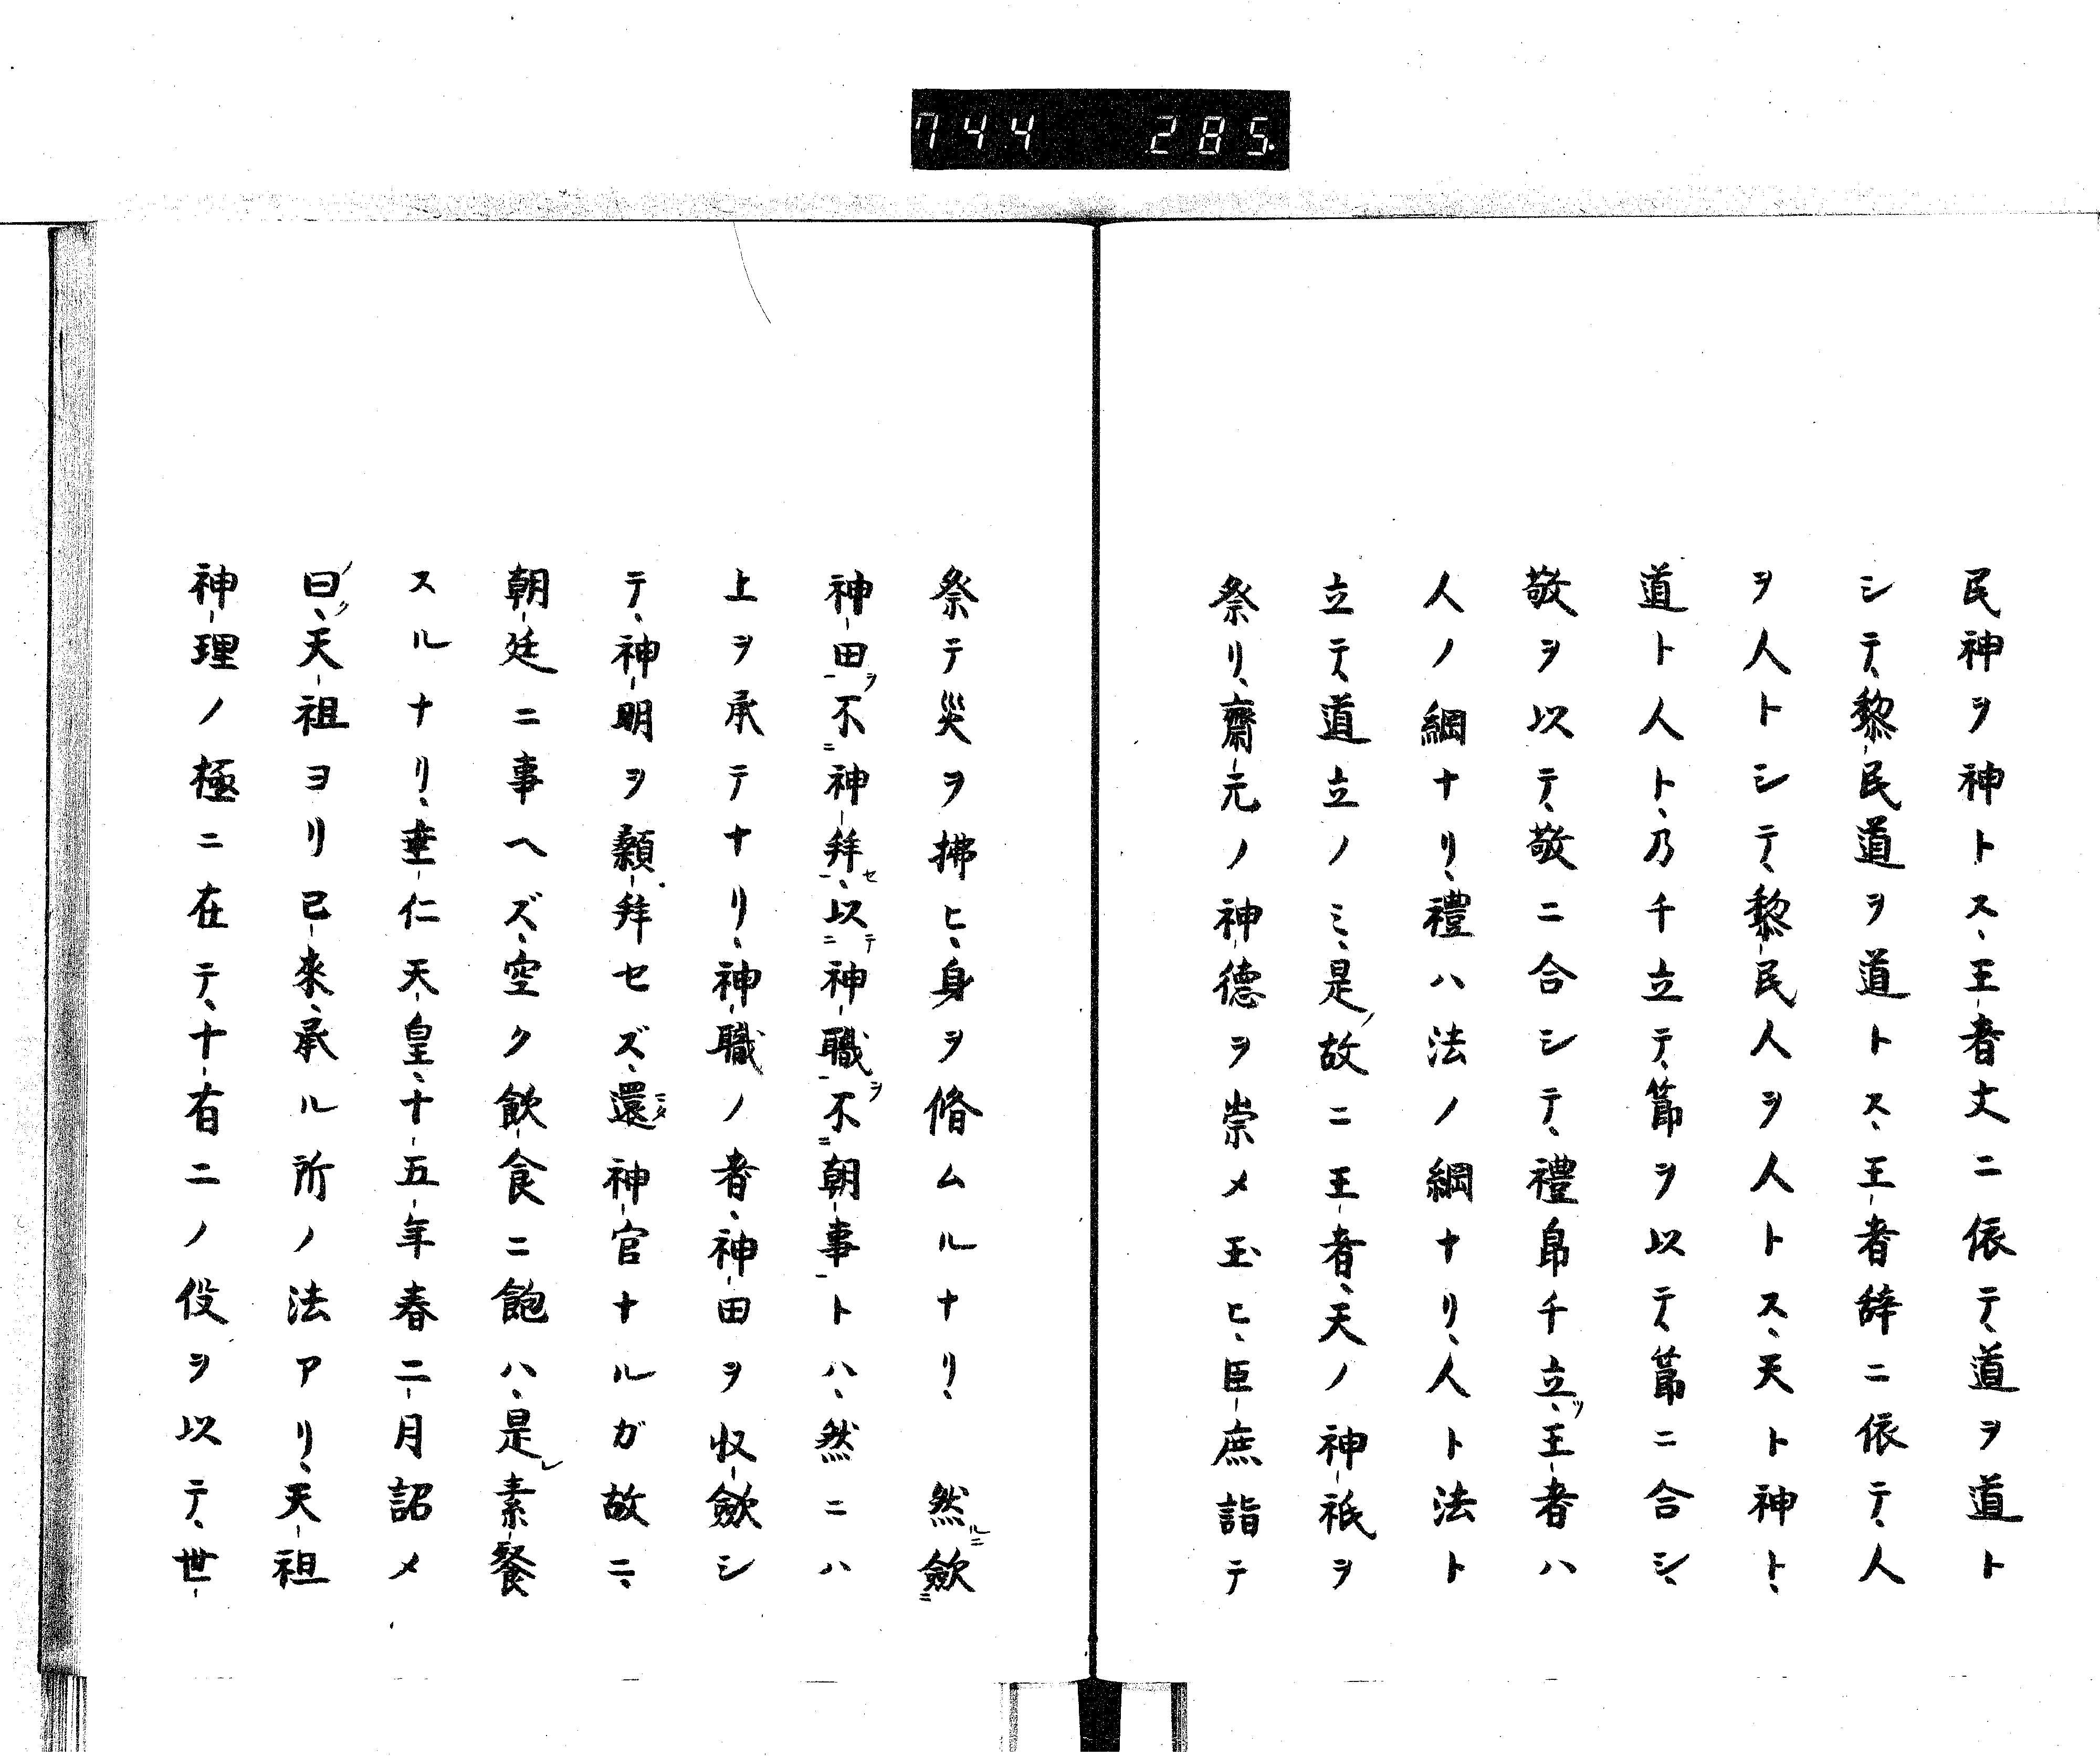 744 285.
民神ヲ神トス、王者丈ニ依テ、道ヲ道ト
シテ、黎民道ヲ道トス、王者辞ニ依テ、人
ヲ人トシテ、黎民人ヲ人トス、天ト神ト、
道ト人ト、乃千立テ、節ヲ以テ、節ニ合シ、
敬ヲ以テ、敬ニ合シテ、禮帛千立ツ、王者ハ
人ノ綱ナリ、禮ハ法ノ綱ナリ、人ト法ト
立テ、道立ノミ、是ノ故ニ王者、天ノ神祇ヲ
祭リ、齋元ノ神徳ヲ崇メ玉ヒ、臣庶詣テ
祭テ災ヲ拂ヒ、身ヲ脩ムルナリ、 然ルニ歛ニ
神田一ヲ不ニ神拜一セ、以ニテ神職一ヲ不ニ朝事一トハ、然ニハ
上ヲ承テナリ、神職ノ者、神田ヲ収歛シ
テ、神明ヲ顙拜セズ、還神官ナルガ故ニ、
朝廷ニ事ヘズ、空ク飲食ニ飽ハ、是レ素餐
スルナリ、垂仁天皇、十五年春二月詔メ
曰ノク、天祖ヨリ已来、承ル所ノ法アリ、天祖
神理ノ極ニ在テ、十有二ノ伇ヲ以テ、世